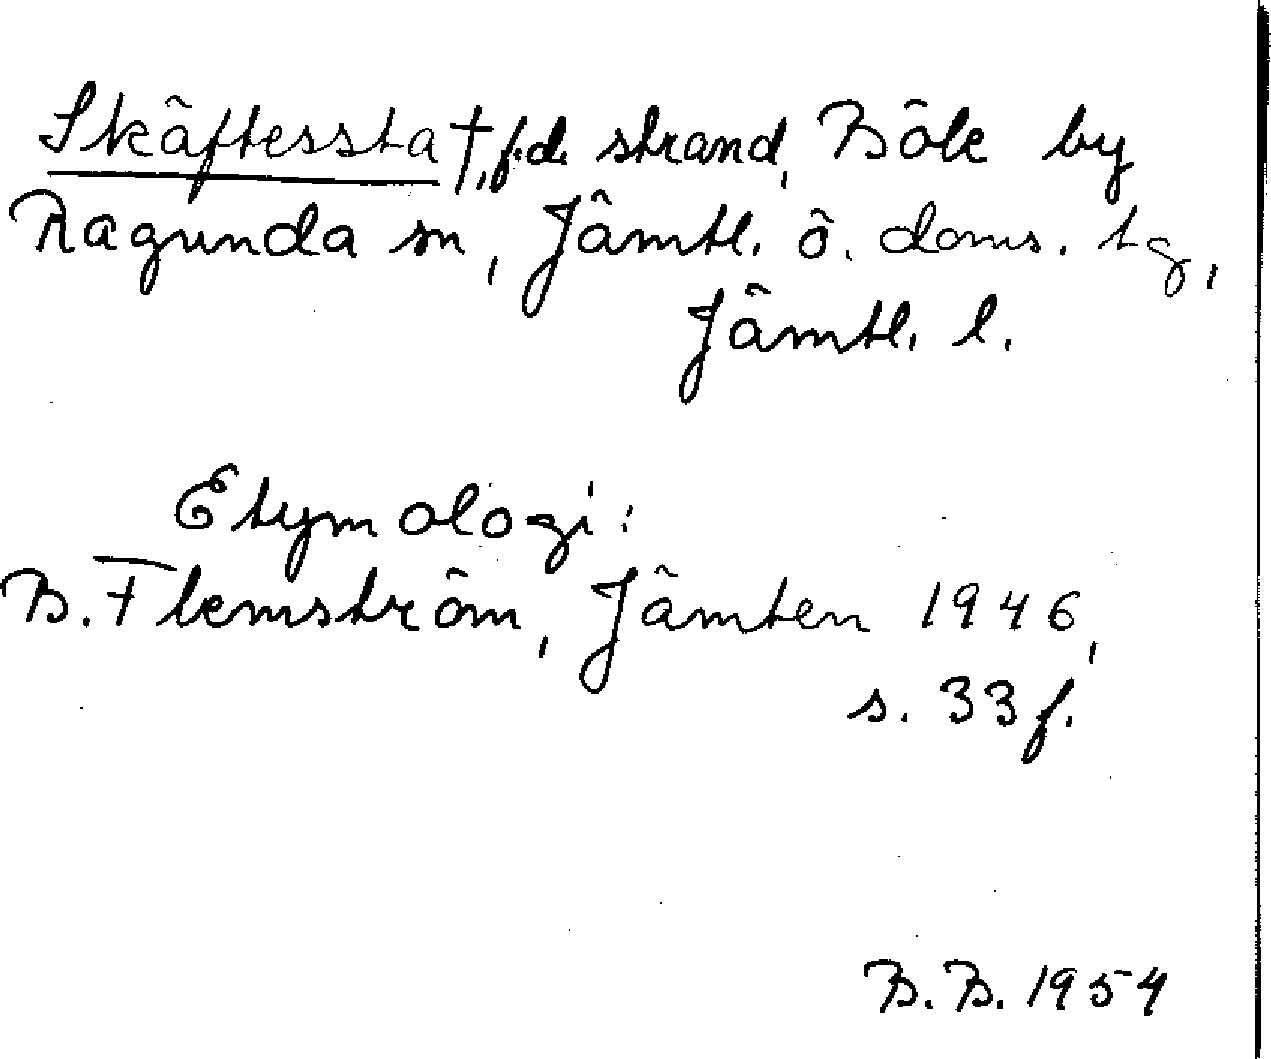 Skäftessta †, f.d. strand, Böle by
Ragunda sn, Jämtl. ö. doms. tg,
Jämtl. l.
Etymologi:
B. Flemström, Jämten 1946,
s. 33 f.
B. B. 1954